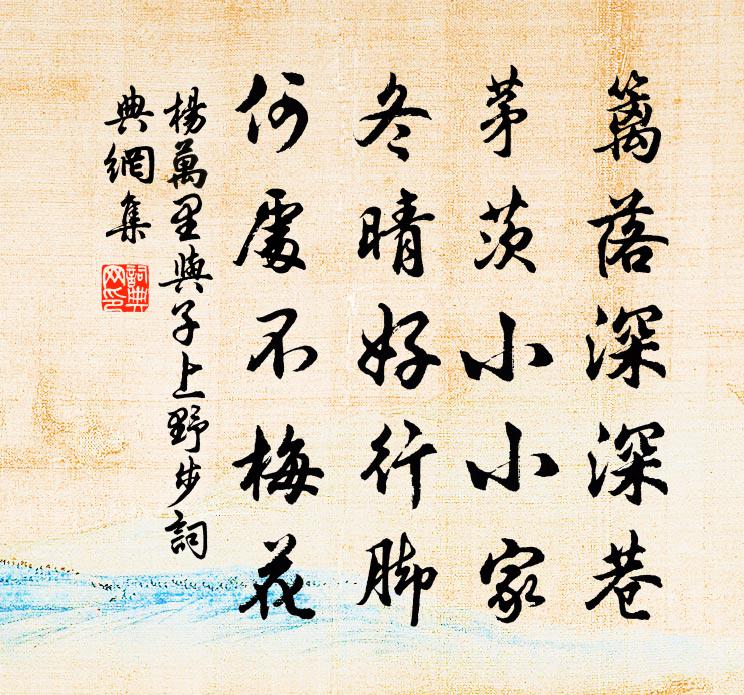 籬落深深巷
茅茨小小家
冬晴好行脚
何處不梅花
楊萬里與子上野步詞
典網集
詞典網印